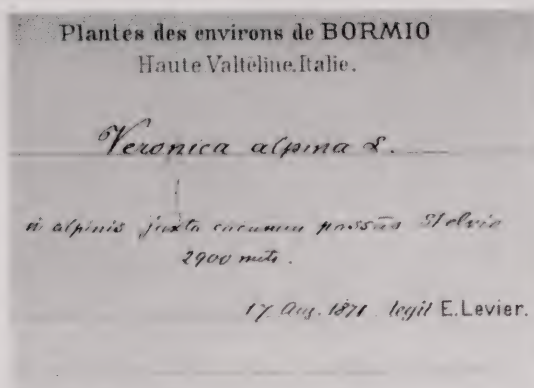 Plantes des environs de BORMIO
Haute Valteline. Italie.
Veronica alpina L.
in alpinis juxta cacumen passûs Stelvio
2900 mets.
17 Aug. 1871 legit E. Levier.